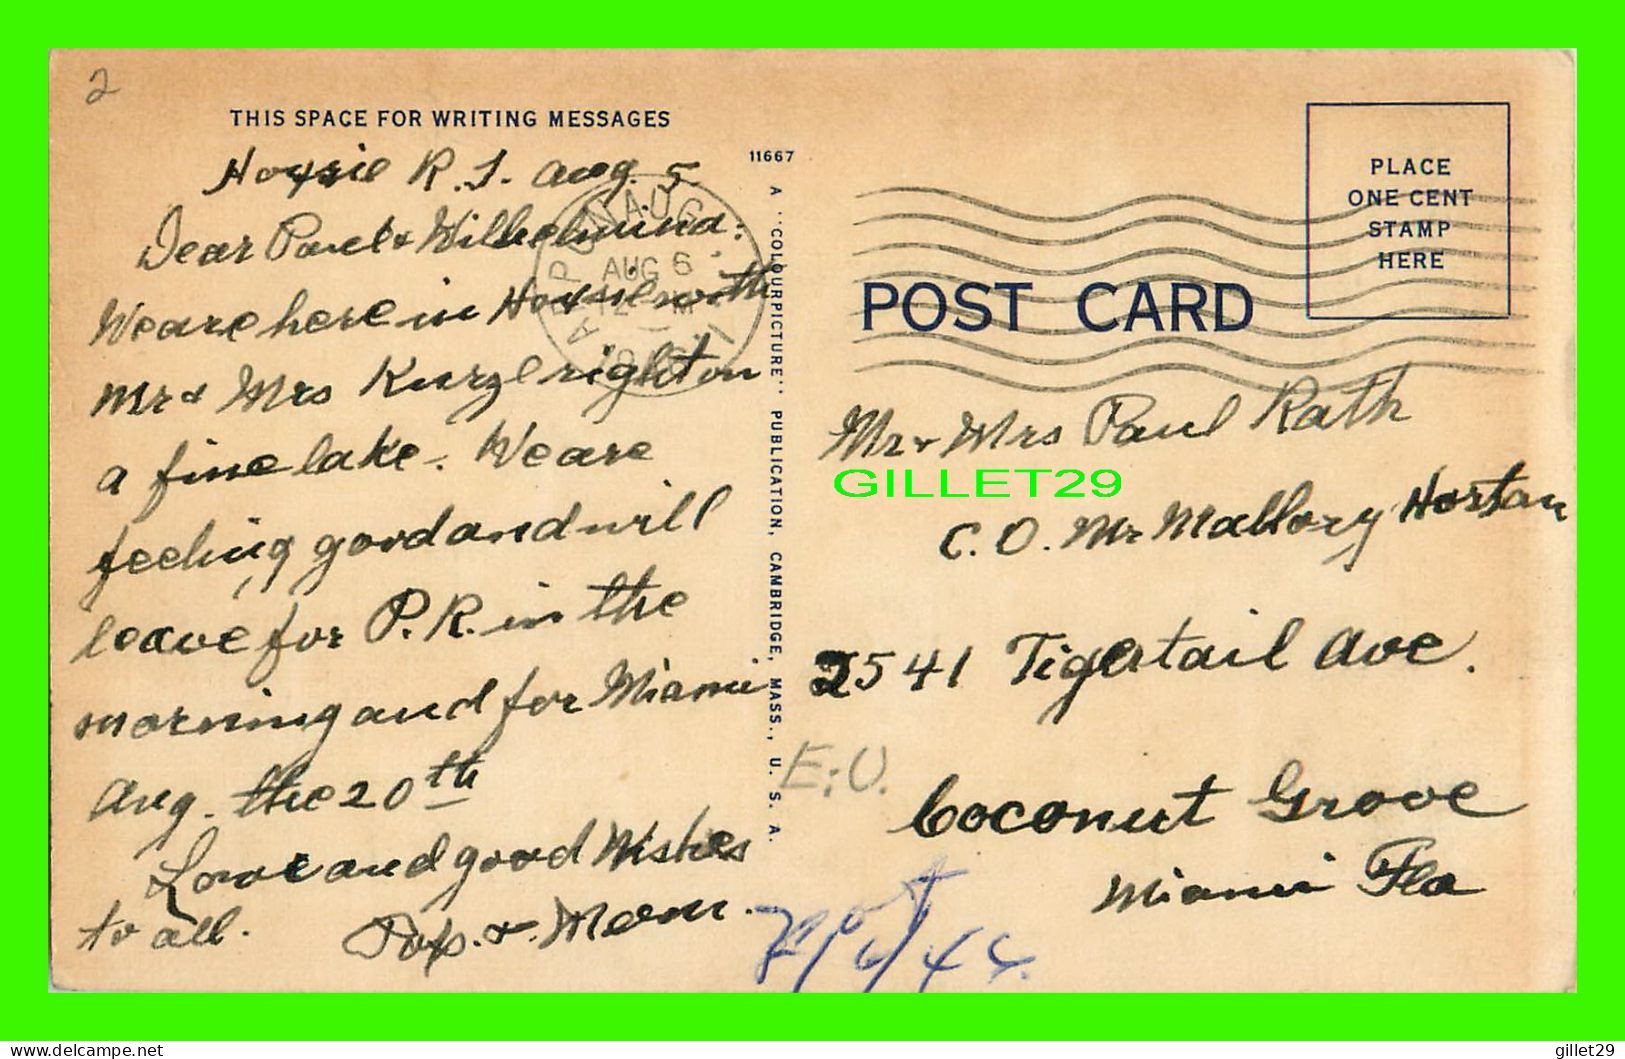 2
THIS SPACE FOR WRITING MESSAGES
Hoxsie R.I. Aug. 5
Dear Paul & Wilhelmina:
We are here in Hoxsie with
Mr & Mrs Kurz right on
a fine lake. We are
feeling good and will
leave for P.R. in the
morning and for Miami
Aug. the 20th
Love and good Wishes
to all. Pop. & Mom.
11667
A "COLOURPICTURE" PUBLICATION, CAMBRIDGE, MASS., U. S. A.
APPONAUG
AUG 6
12 - M
R.I.
PLACE
ONE CENT
STAMP
HERE
POST CARD
Mr & Mrs Paul Rath
GILLET29
C.O. Mr Mallory Horton
2541 Tigertail Ave.
E.U.
Coconut Grove
Miami Fla
delcampe.net
gillet29